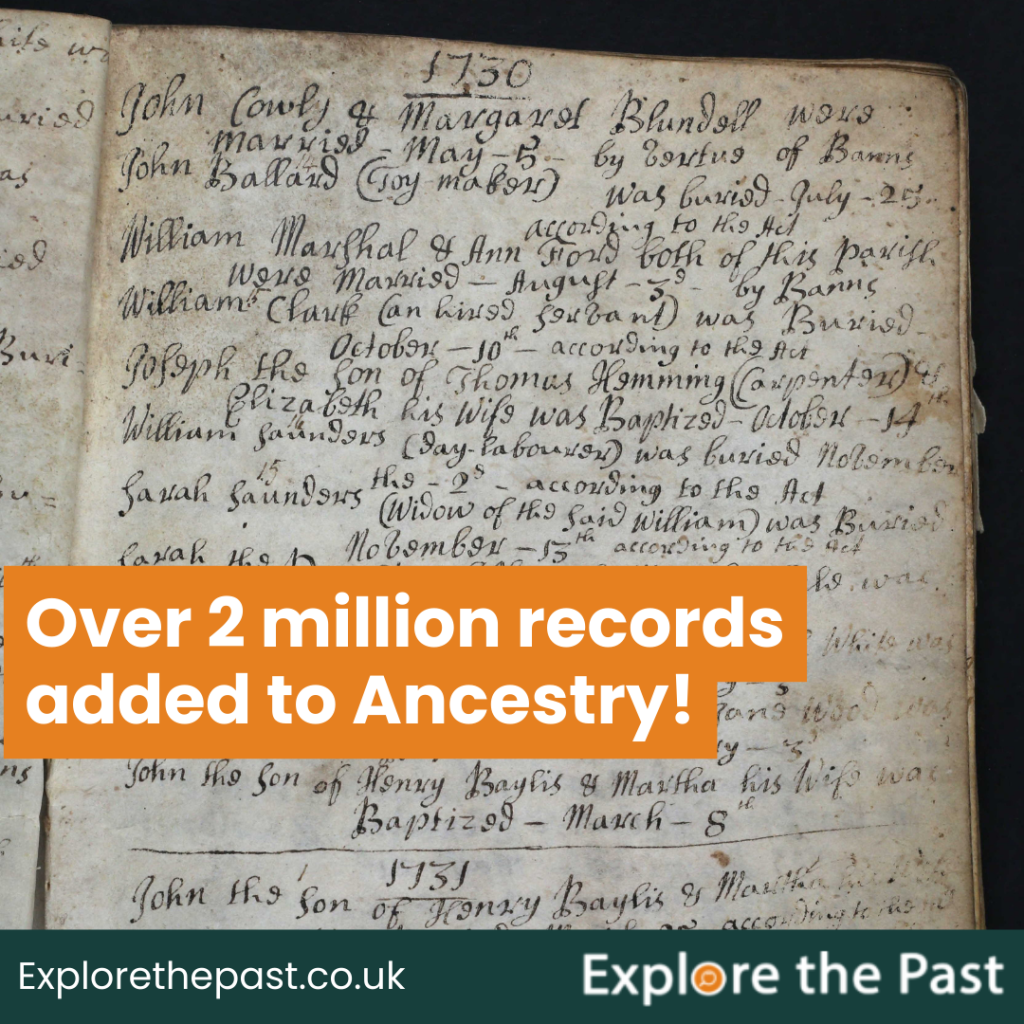 1730
John Cowly & Margaret Blundell were
Married – May – 5 – by Vertue of Banns
John Ballard (Toy-maker) was buried – July – 25.
14
according to the Act
William Marshal & Ann Ford both of this Parish
were Married – August – 3d – by Banns
William Clark (an hired servant) was Buried –
October – 10th – according to the Act
Joseph the Son of Thomas Hemming (Carpenter) &
Elizabeth his Wife was Baptized – October – 14th
William Saunders (day-labourer) was buried November
the – 2d – according to the Act
15
Sarah Saunders (Widow of the said William) was Buried
November – 13th according to the Act
Sarah the
was
White was
Wood was
John the Son of Henry Baylis & Martha his Wife was
Baptized – March – 8th
1731
John the Son of Henry Baylis & Martha his Wife
according to the
white
Buri-
Over 2 million records
added to Ancestry!
Explorethepast.co.uk
Explore the Past